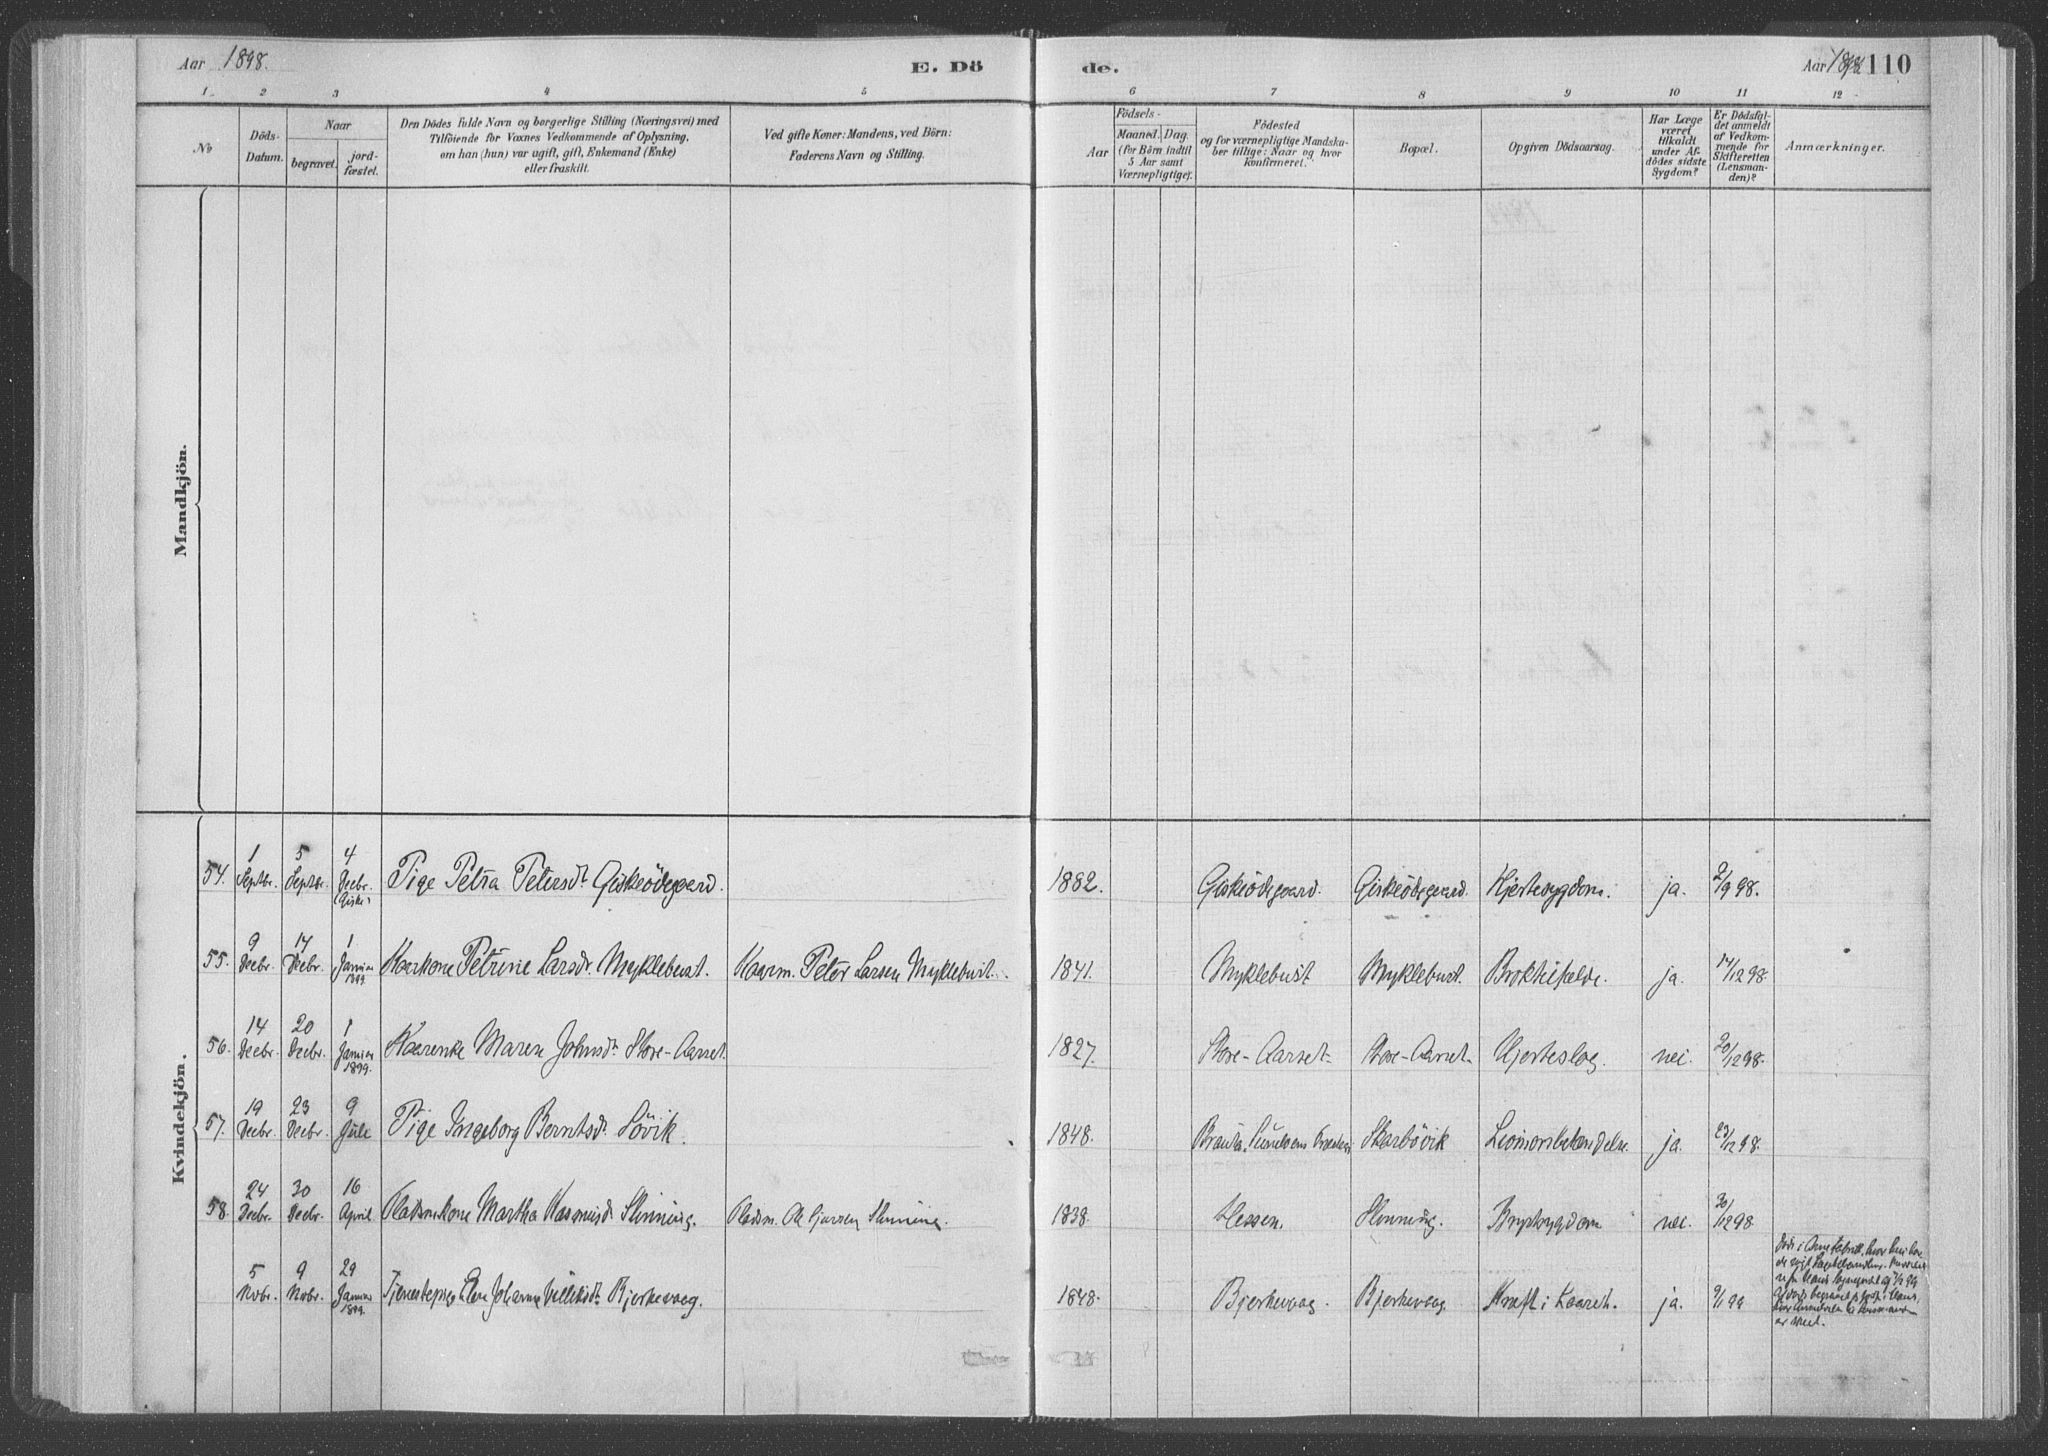 Aar 1898.
E. Dö
de.
Aar 1898
110
1 2 3 4 5 6 7 8 9 10 11 12
No
Döds-Datum.
Naar
begravet.
jord-fæstet.
Den Dödes fulde Navn og borgerlige Stilling (Næringsvei) med
Tilföiende for Voxnes Vedkommende af Oplysning,
om han (hun) var ugift, gift, Enkemand (Enke)
eller fraskilt.
Ved gifte Koner: Mandens, ved Börn:
Faderens Navn og Stilling.
Födsels-
Aar
Maaned.
Dag.
(for Börn indtil
5 Aar samt
Værnepligtige).
Födested
og for værnepligtige Mandska-
ber tillige: Naar og hvor
konfirmeret.
Bopæl.
Opgiven Dödsaarsag.
Har Læge
været
tilkaldt
under Af-
dödes sidste
Sygdom?
Er Dödsfal-
det anmeldt
af Vedkom-
mende for
Skifteretten
(Lensman-
den)?
Anmærkninger.
Mandkjön.
Kvindekjön.
54. 1 Septbr. 5 Septbr. 4 Decbr. (Giske) Pige Petra Petersdt. Giskeödegaard. 1882. Giskeödegaard. Giskeödegaard. Hjertesygdom. ja. 2/9 98.
55. 9 Decbr. 14 Decbr. 1 Januar 1899. Kaarkone Petrine Larsdt. Myklebust. Kaarm. Peter Larsen Myklebust. 1841. Myklebust Myklebust. Braktilfælde. ja. 14/12 98.
56. 14 Decbr. 20 Decbr. 1 Januar 1899. Kaarenke Maren Johnsdt. Store-Aarset. 1827. Store-Aarset. Store-Aarset. Hjerteslag. nei. 20/12 98.
57. 19 Decbr. 23 Decbr. 9 Juli Pige Ingeborg Berntsdt. Lövik. 1848. Skarbövik ja. 23/12 98.
58. 24 Decbr. 30 Decbr. 16 April Pladsmkone Martha Rasmusdt. Slinning. Pladsm. Ole Slinning. 1838. Hessen. Slinning. Brystsygdom nei. 30/12 98.
5 Novbr. 9 Novbr. 29 Januar 1899. Tjenestepige Johanne Bjerkevaag. 1848. Bjerkevaag. Bjerkevaag. Kræft i Laaret. ja. 9/1 99
er skeet.